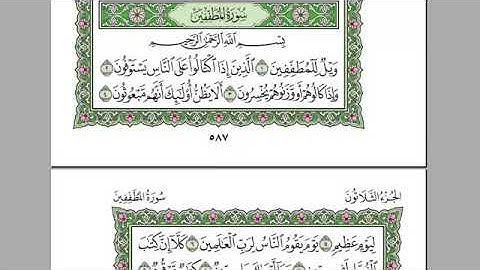 سُورَةُ المُطَفِّفِينَ
بِسْمِ اللَّهِ الرَّحْمَٰنِ الرَّحِيمِ
وَيْلٌ لِّلْمُطَفِّفِينَ ١ الَّذِينَ إِذَا اكْتَالُوا عَلَى النَّاسِ يَسْتَوْفُونَ ٢
وَإِذَا كَالُوهُمْ أَو وَّزَنُوهُمْ يُخْسِرُونَ ٣ أَلَا يَظُنُّ أُولَٰئِكَ أَنَّهُم مَّبْعُوثُونَ ٤
٥٨٧
الجُزْءُ الثَّلَاثُونَ
سُورَةُ المُطَفِّفِينَ
لِيَوْمٍ عَظِيمٍ ٥ يَوْمَ يَقُومُ النَّاسُ لِرَبِّ الْعَالَمِينَ ٦ كَلَّا إِنَّ كِتَابَ